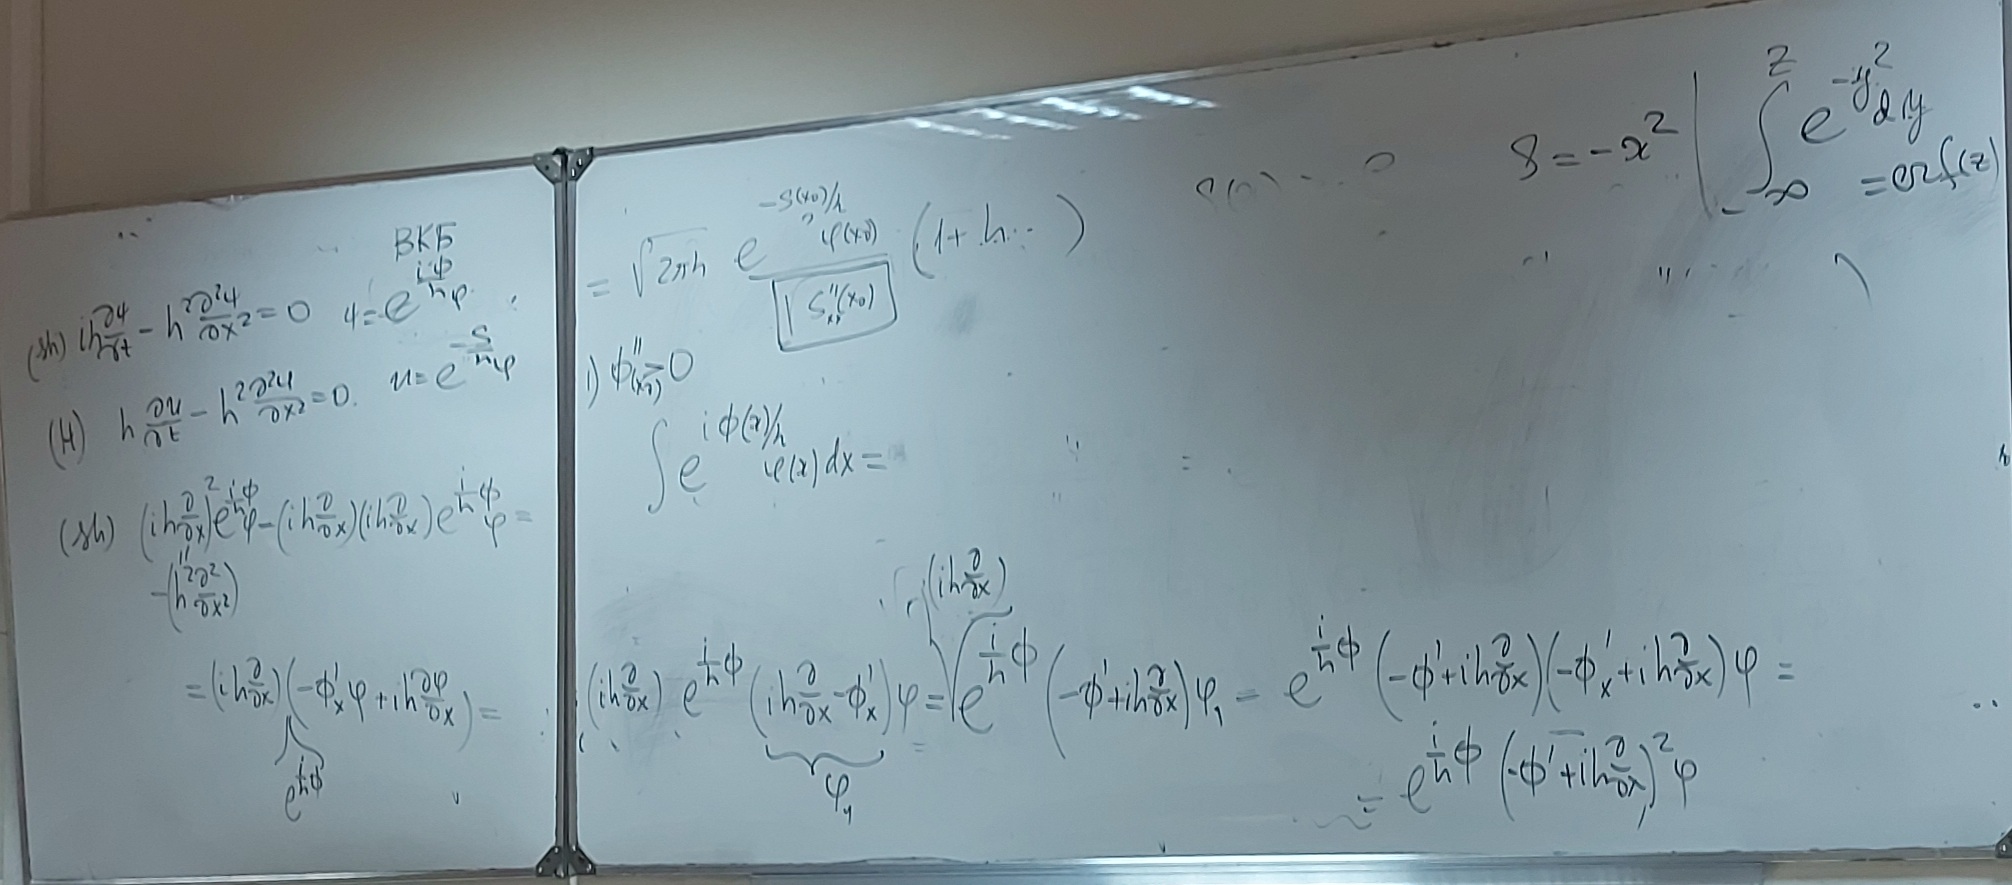 ВКБ
(sh) ih ∂ψ/∂t − h² ∂²ψ/∂x² = 0   ψ = e^{iϕ/h} φ
(H) h ∂u/∂t − h² ∂²u/∂x² = 0.   u = e^{−S/h} φ
(sh) (ih ∂/∂x)² e^{i/h ϕ} φ − (ih ∂/∂x)(ih ∂/∂x) e^{i/h ϕ} φ =
−(h² ∂²/∂x²)
= (ih ∂/∂x)(−ϕ'ₓ φ + ih ∂φ/∂x) =
e^{i/h ϕ}
= √2πh e^{−S(x₀)/h} φ(x₀) / √S''ₓₓ(x₀) (1 + h...)
1) ϕ''(x₀) > 0
∫ e^{iϕ(x)/h} φ(x) dx =
(ih ∂/∂x)
(ih ∂/∂x) e^{i/h ϕ} (ih ∂/∂x − ϕ'ₓ) φ = e^{i/h ϕ} (−ϕ' + ih ∂/∂x) φ₁ = e^{i/h ϕ} (−ϕ' + ih ∂/∂x)(−ϕ'ₓ + ih ∂/∂x) φ =
φ₁
= e^{i/h ϕ} (−ϕ' + ih ∂/∂x)² φ
S = −x² | ∫_{−∞}^{z} e^{−y²} dy
= erf(z)